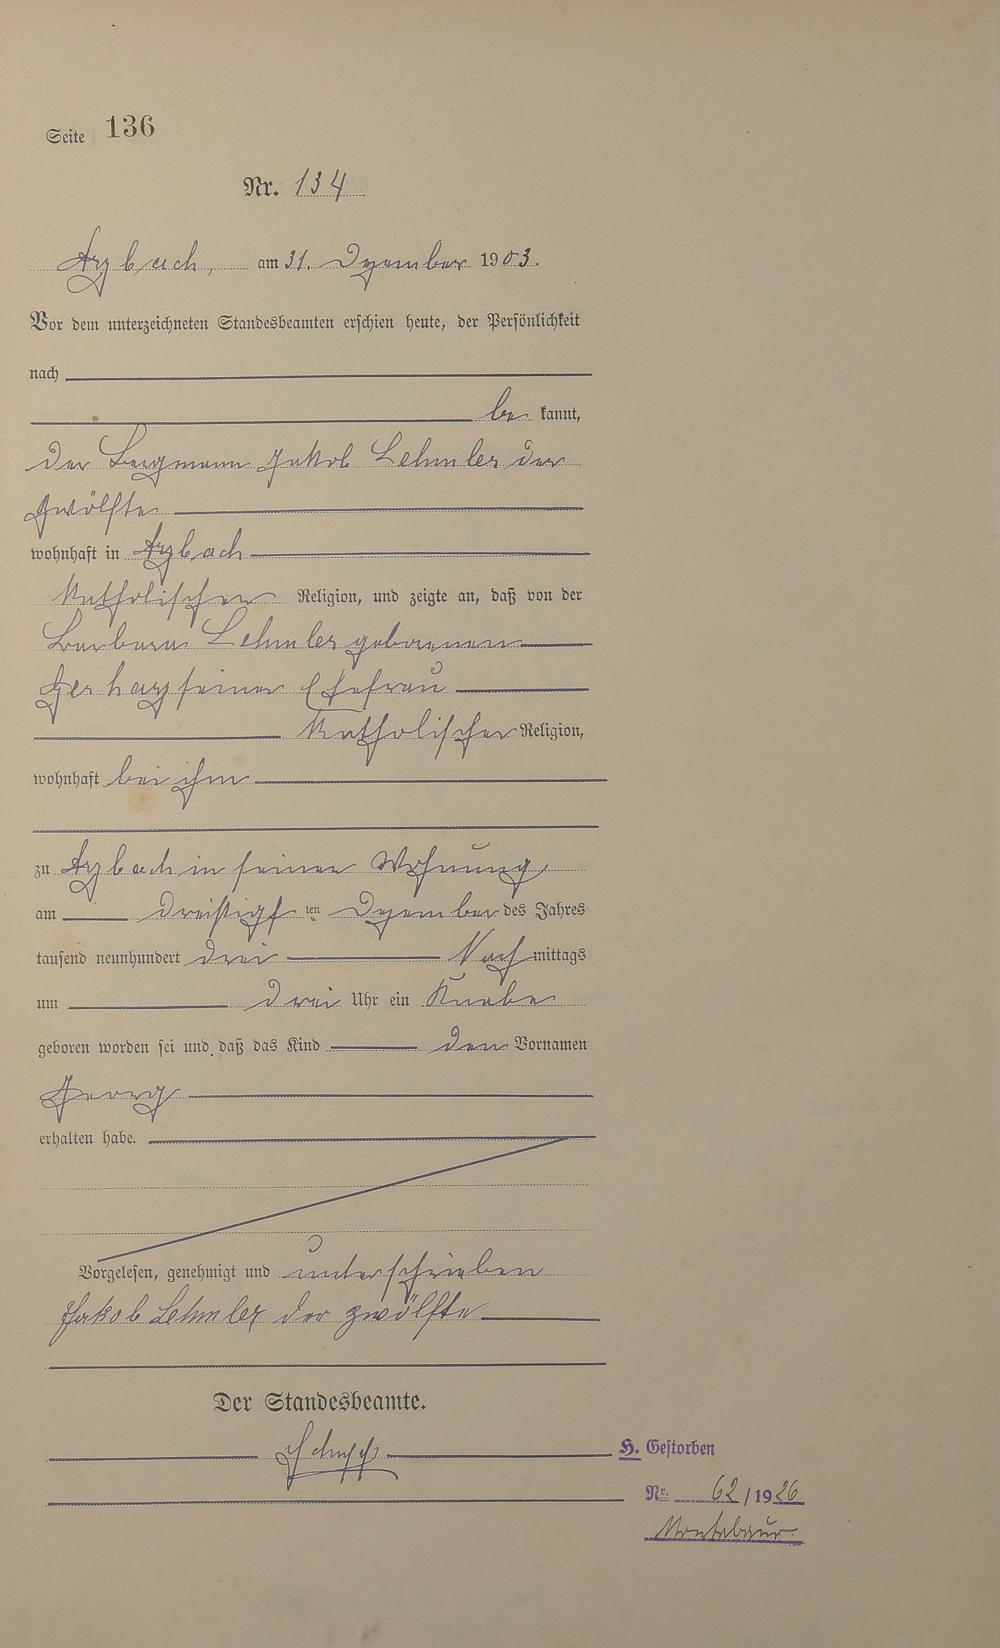 Seite 136
Nr. 134
Arzbach, am 31. Dezember 1903.
Vor dem unterzeichneten Standesbeamten erschien heute, der Persönlichkeit
nach
be kannt,
der Bergmann Jakob Lehmler der
zwölfte
wohnhaft in Arzbach
katholischer Religion, und zeigte an, daß von der
Barbara Lehmler geborenen
Gerharz seiner Ehefrau
katholischer Religion,
wohnhaft bei ihm
zu Arzbach in seiner Wohnung
am dreißigsten Dezember des Jahres
tausend neunhundert drei Nach mittags
um drei Uhr ein Knabe
geboren worden sei und daß das Kind den Vornamen
Georg
erhalten habe.
Vorgelesen, genehmigt und unterschrieben
Jakob Lehmler der zwölfte
Der Standesbeamte.
H. Gestorben
Nr. 62/1926
Montabaur.